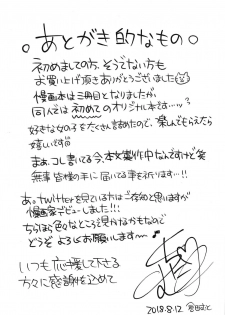 。あとがき的なもの。
初めましての方、そうでない方も
お買い上げ頂きありがとうございました
漫画本は三冊目となりましたが、
同人では初めてのオリジナル本です…っ?
好きな女の子をたくさん詰めたので、楽しんでもらえたら
嬉しいです
まぁ、コレ書いてる今、本文製作中なんですけど笑
無事皆様の手に届いてる事を祈ります…!
あ。twitterを見ている方はご存知と思いますが
漫画家デビューしました!!!
ちらほら色々なところで見かるかもなんで
どうぞよろしくお願いします〜♪
いつも応援して下さる
方々に感謝を込めて
2018.8.12